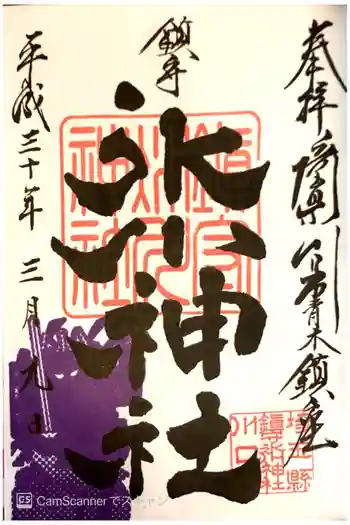 奉拝 埼玉県川口市青木鎮座
鎮守
氷川神社
平成三十年三月九日
鎮守氷川神社
埼玉縣
鎮守氷川神社
川口
CS CamScanner でスキャン